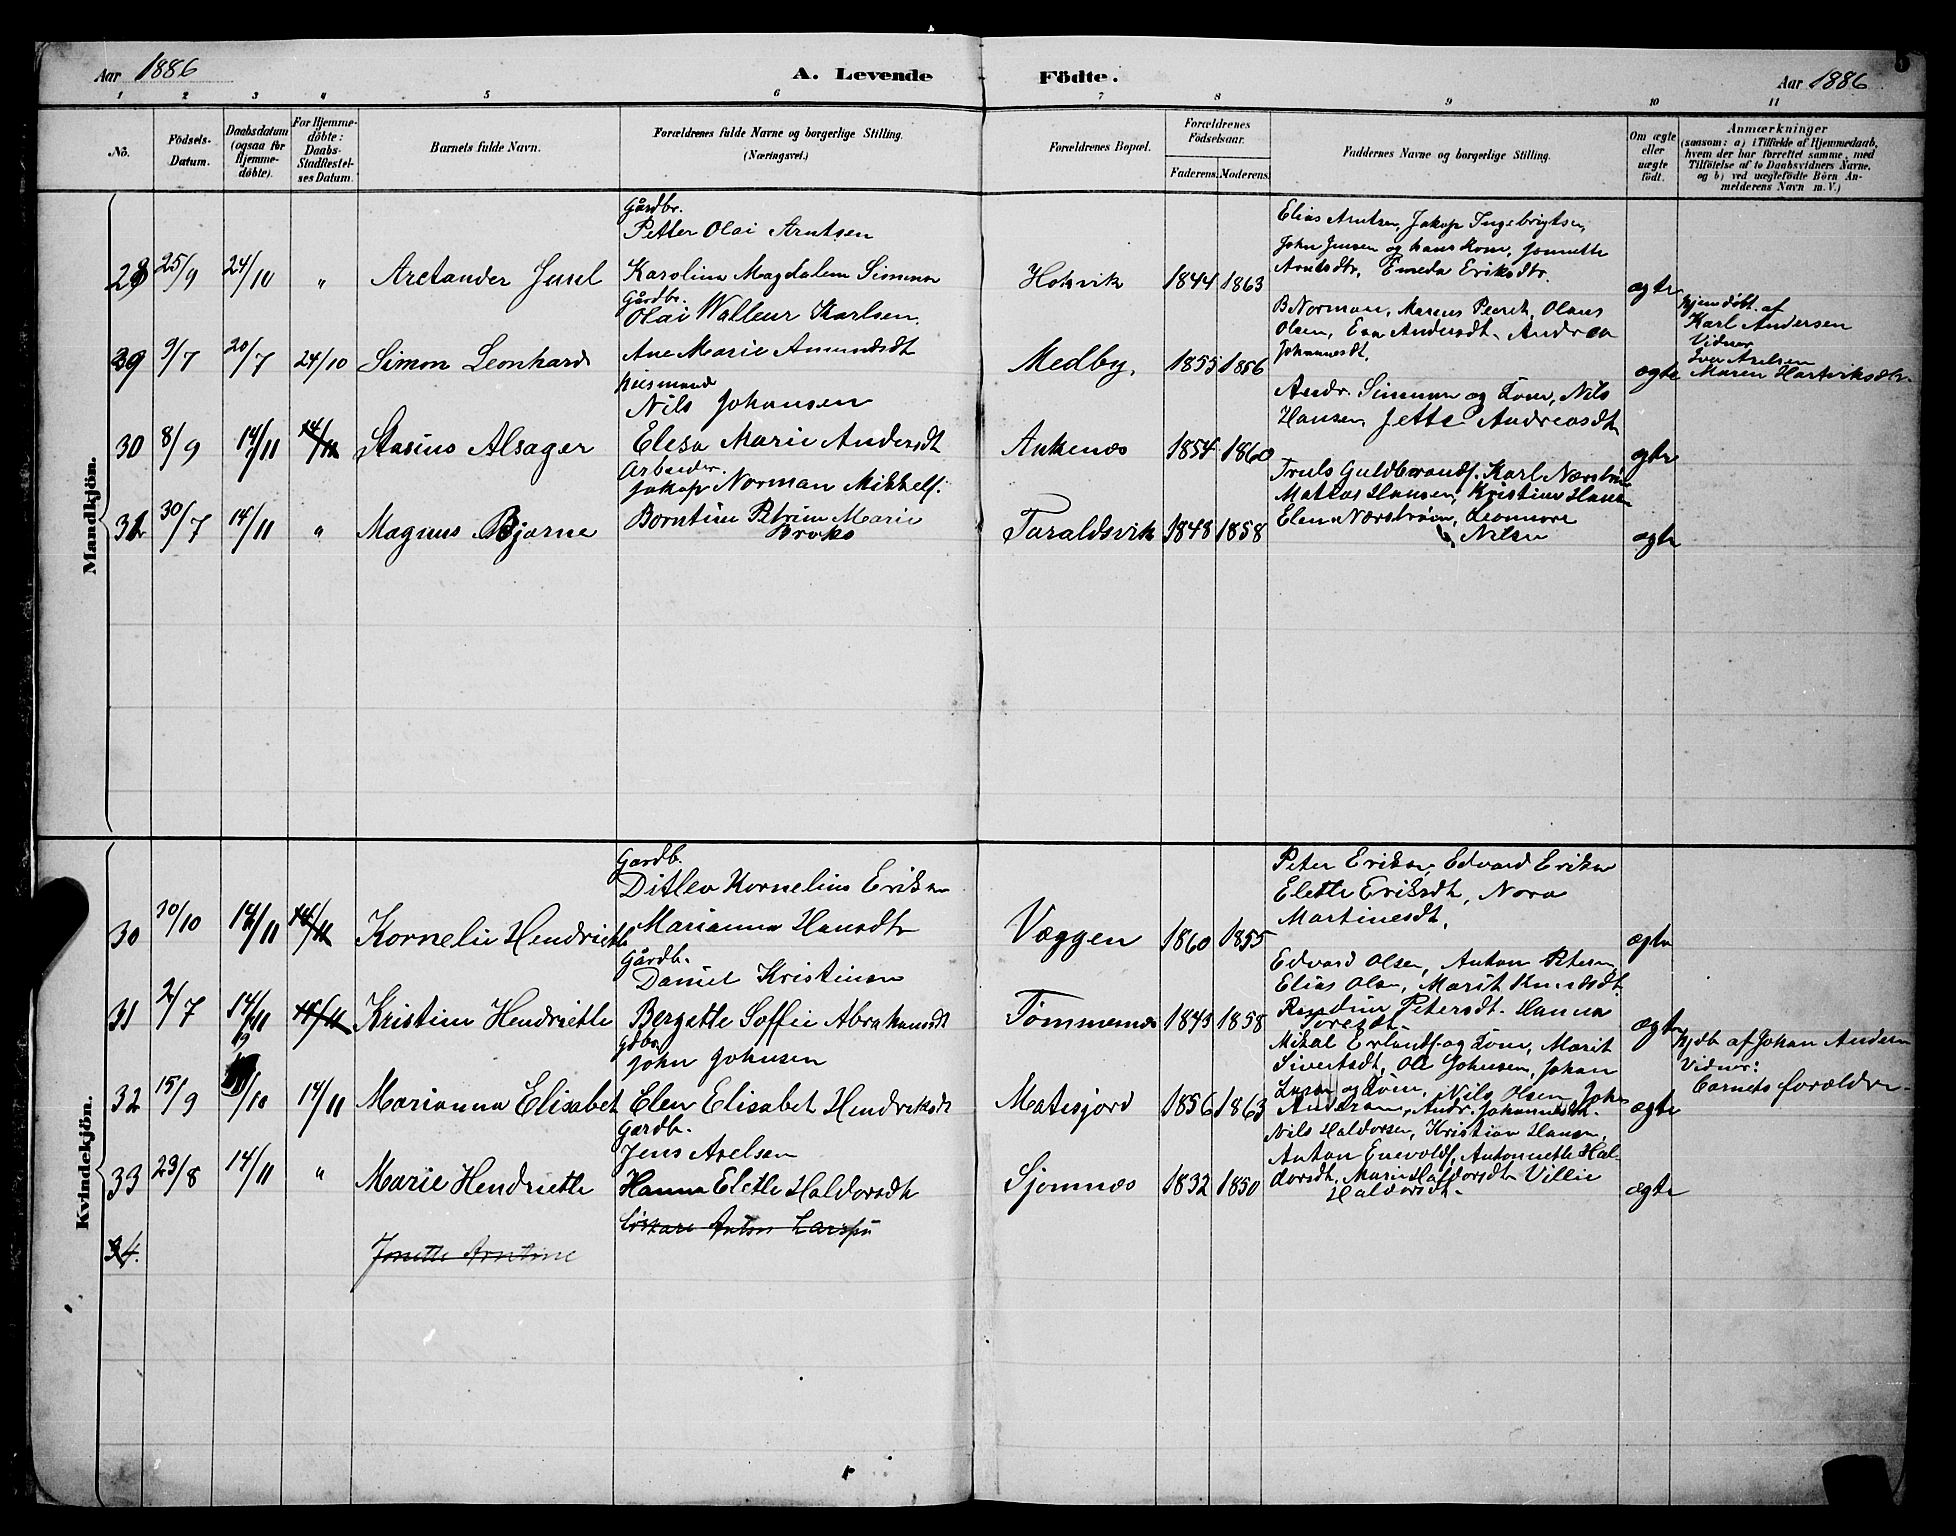 Aar 1886
A. Levende Födte.
Aar 1886
5
1 2 3 4 5 6 7 8 9 10 11
No.
Födsels-
Datum.
Daabsdatum
(ogsaa for
Hjemme-
döbte).
For Hjemme-
döbte:
Daabs-
Stadfestel-
ses Datum.
Barnets fulde Navn.
Forældrenes fulde Navne og borgerlige Stilling.
(Næringsvei.)
Forældrenes Bopæl.
Forældrenes
Födselsaar.
Faderens. Moderens.
Faddernes Navne og borgerlige Stilling.
Om ægte
eller
uægte
født.
Anmærkninger
(saasom: a) i Tilfælde af Hjemmedaab,
hvem der har forrettet samme, med
Tilföielse af to Daabsvidners Navne,
og b) ved uægtefödte Börn An-
melderens Navn m. V.)
Mandkjön.
Gårdbr.
Petter Olai Arntsen
Elias Arntsen, Jakop Ingebrigtsen,
John Jensen og hans Kone, Jonnette
Arntsdtr, Emeda Eriksdtr.
28 25/9 24/10 " Aretander Juul Karoline Magdalena Simonsen Hokvik 1844 1863 ægte
Gårdbr.
Olai Walleur Karlsen.
B Norman, Marcus Pedrct, Olaus
Olsen, Eva Andersdt. Andrea
Johannesdt.
Hjemdöbt af
Karl Andersen
Vidner
Iver Axelsen
Maren Hartviksdtr.
29 9/7 20/7 24/10 Simon Leonhard Ane Marie Amundsdt Medby, 1855 1856 ægte
Husmand
Nils Johansen
Andr. Simonsen og Kone, Nils
Hansen, Jette Andreasdt
30 8/9 14/11 14/11 Stasius Alsager Elesa Marie Andersdt Ankenes 1854 1860 ægte
Arbeider.
Jakop Norman Mikkels.
Truls Guldbrands. Karl Nærstrøm
Mattias Hansen, Kristine Hansen
Elena Nærstrøm, Leonnore
Nilsen
31 30/7 14/11 " Magnus Bjarne Borntine Petrine Marie
Broks
Taraldsvik 1848 1858 ægte
Kvindekjön.
Gardb.
Ditlev Kornelius Eriksen
Peter Eriksen, Edvard Eriksen
Elette Eriksdt, Nora
Martinesdt,
30 10/10 14/11 14/11 Kornelie Hendriette Marianna Hansdtr Væggen 1860 1855 ægte
Gårdb.
Daniel Kristiansen
Edvard Olsen, Anton Petersen,
Elias Olsen, Marit Knudsdt.
Petersdt. Hanna
Toresdt.
31 2/7 14/11 14/11 Kristine Hendriette Bergette Soffie Abrahamsdt Tömmernes 1843 1858 ægte
Gdbr.
John Johnsen
Mikal Erlands. og Kone, Marit
Sivertsdt, Ole Johnsen, Johan
Larsen og Kone, Nils Olsen, Johs
Andersen, Andr. Johannesen.
Hjdb af Johan Andersen
Vidner:
Barnets forældre.
32 15/9 /10 14/11 Marianna Elisabet Elen Elisabet Hendriksdt Matisfjord 1856 1863 ægte
Gardb.
Jens Axelsen
Nils Haldorsen, Kristian Hansen,
Anton Enevolds, Antonnette Hal-
dorsdt, Marie Haldorsdt Villie
Haldorsdt.
33 23/8 14/11 " Marie Hendriette Hanna Elette Haldorsdt Sjomnes 1832 1850 ægte
Anton Larssen
34. Jonette Arntine